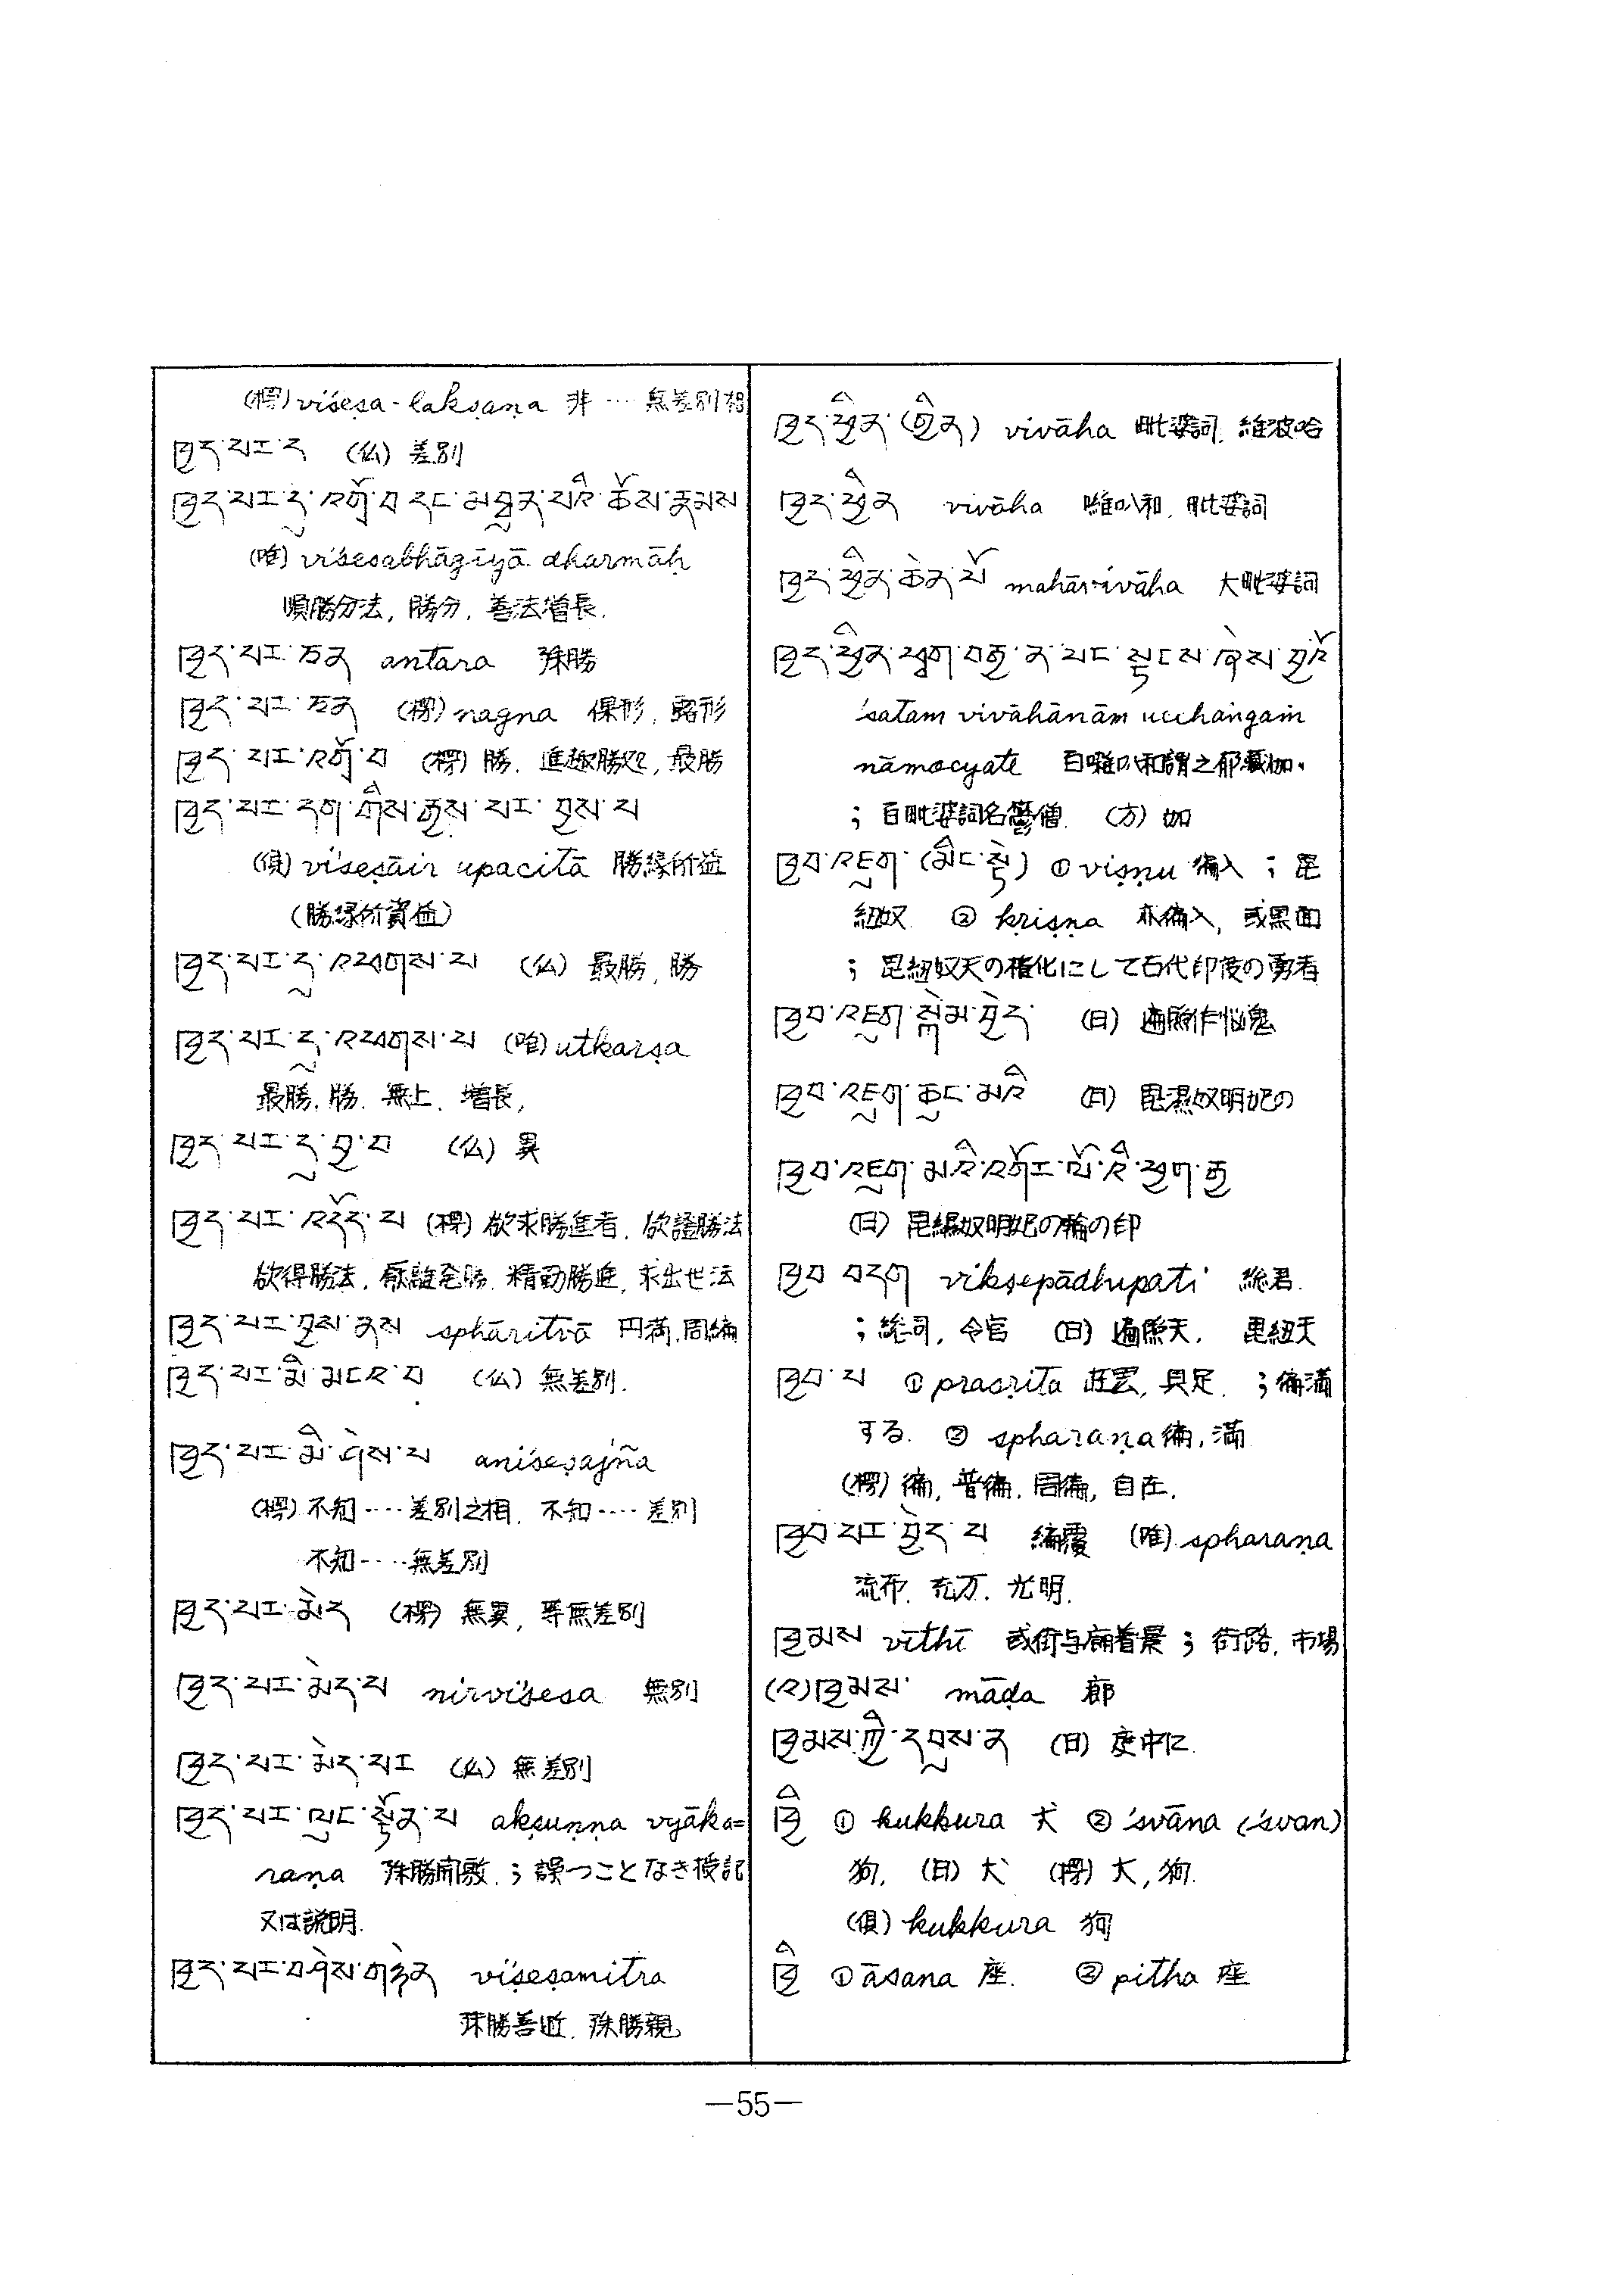 (楞) viśeṣa-lakṣaṇa 非 ‥‥ 無差別相
ཁྱད་པར་ད (仏) 差別
ཁྱད་པར་དུ་འགྲོ་བ་དང་མཐུན་པའི་ཆོས་རྣམས
(唯) viśeṣabhāgīyā dharmāḥ
順勝分法, 勝分, 善法増長.
ཁྱད་པར་ཅན antara 殊勝
ཁྱད་པར་ཅན (楞) nagna 保形, 露形
ཁྱད་པར་འགྲོ་བ (楞) 勝, 進趣勝処, 最勝
ཁྱད་པར་དག་གིས་རྒྱས་པར་བྱས་པ
(倶) viśeṣair upacitā 勝縁所益
(勝縁所資益)
ཁྱད་པར་དུ་འཕགས་པ (仏) 最勝, 勝
ཁྱད་པར་དུ་འཕགས་པ (唯) utkarṣa
最勝, 勝, 無上, 増長,
ཁྱད་པར་དུ་བྱ་བ (仏) 異
ཁྱད་པར་འདོད་པ (楞) 欲求勝進者, 欲證勝法
欲得勝法, 厭離 勝, 精勤勝進, 求出世法
ཁྱད་པར་བྱས་ནས sphāritvā 円満, 周徧
ཁྱད་པར་མི་མངའ་བ (仏) 無差別.
ཁྱད་པར་མི་ཤེས་པ aniśeṣajña
(楞) 不知‥‥差別之相, 不知‥‥差別
不知‥‥無差別
ཁྱད་པར་མེད (楞) 無異, 等無差別
ཁྱད་པར་མེད་པ nirviśeṣa 無別
ཁྱད་པར་མེད་པར (仏) 無差別
ཁྱད་པར་ལུང་སྟོན་པ akṣuṇṇa vyāka=
raṇa 殊勝開 ; 誤つことなき授記
又は説明.
ཁྱད་པར་བཤེས་གཉེན viśeṣamitra
殊勝善 , 殊勝親
ཁྱད་ཕྱིན་(བྱིན) vivāha 毗婆訶, 維波哈
ཁྱད་ཕྱིན vivāha 嗺叭和, 毗婆訶
ཁྱད་ཕྱིན་ཆེན་པོ mahāvivāha 大毗婆訶
ཁྱད་ཕྱིན་ཕྲག་བརྒྱ་ན་པང་སྟངས་ཞེས་བྱའོ
śatam vivāhānām ucchaṅgaṁ
nāmocyate 百嗺叭和謂之郁 伽.
; 百毗婆訶名鬱僧. (方) 如
ཁྱབ་འཇུག་(མིང་སྟེ) ① viṣṇu 徧入 ; 毘
紐奴 ② kriṣṇa 亦徧入, 或黒面
; 毘紐奴天の権化にして古代印度の勇者
ཁྱབ་འཇུག་སྐེམ་བྱེད (日) 遍照作悩鬼
ཁྱབ་འཇུག་ཆུང་མའི (日) 毘濕奴明妃の
ཁྱབ་འཇུག་མའི་འཁོར་ལོའི་ཕྱག་རྒྱ
(日) 毘縕奴明妃の輪の印
ཁྱབ་བདག vikṣepādhipati 総君.
; 総司, 令官 (日) 遍照天, 毘紐天
ཁྱབ་པ ① prasṛita 荘 , 具足. ; 徧満
する. ② spharaṇa 徧, 満.
(楞) 徧, 普徧, 周徧, 自在.
ཁྱབ་པར་བྱེད་པ 編覆 (唯) spharaṇa
流布, 充万, 光明.
ཁྱམས vīthī 或街与廟 景 ; 街路, 市場
(འ)ཁྱམས་ māḍa 廊
ཁྱམས་ཀྱི་དབུས་ན (日) 庭中に
ཁྱི ① kukkura 犬 ② śvāna (śvan)
狗, (日) 犬 (楞) 犬, 狗.
(倶) kukkura 狗
ཁྲི ① āsana 座. ② pitha 座
—55—